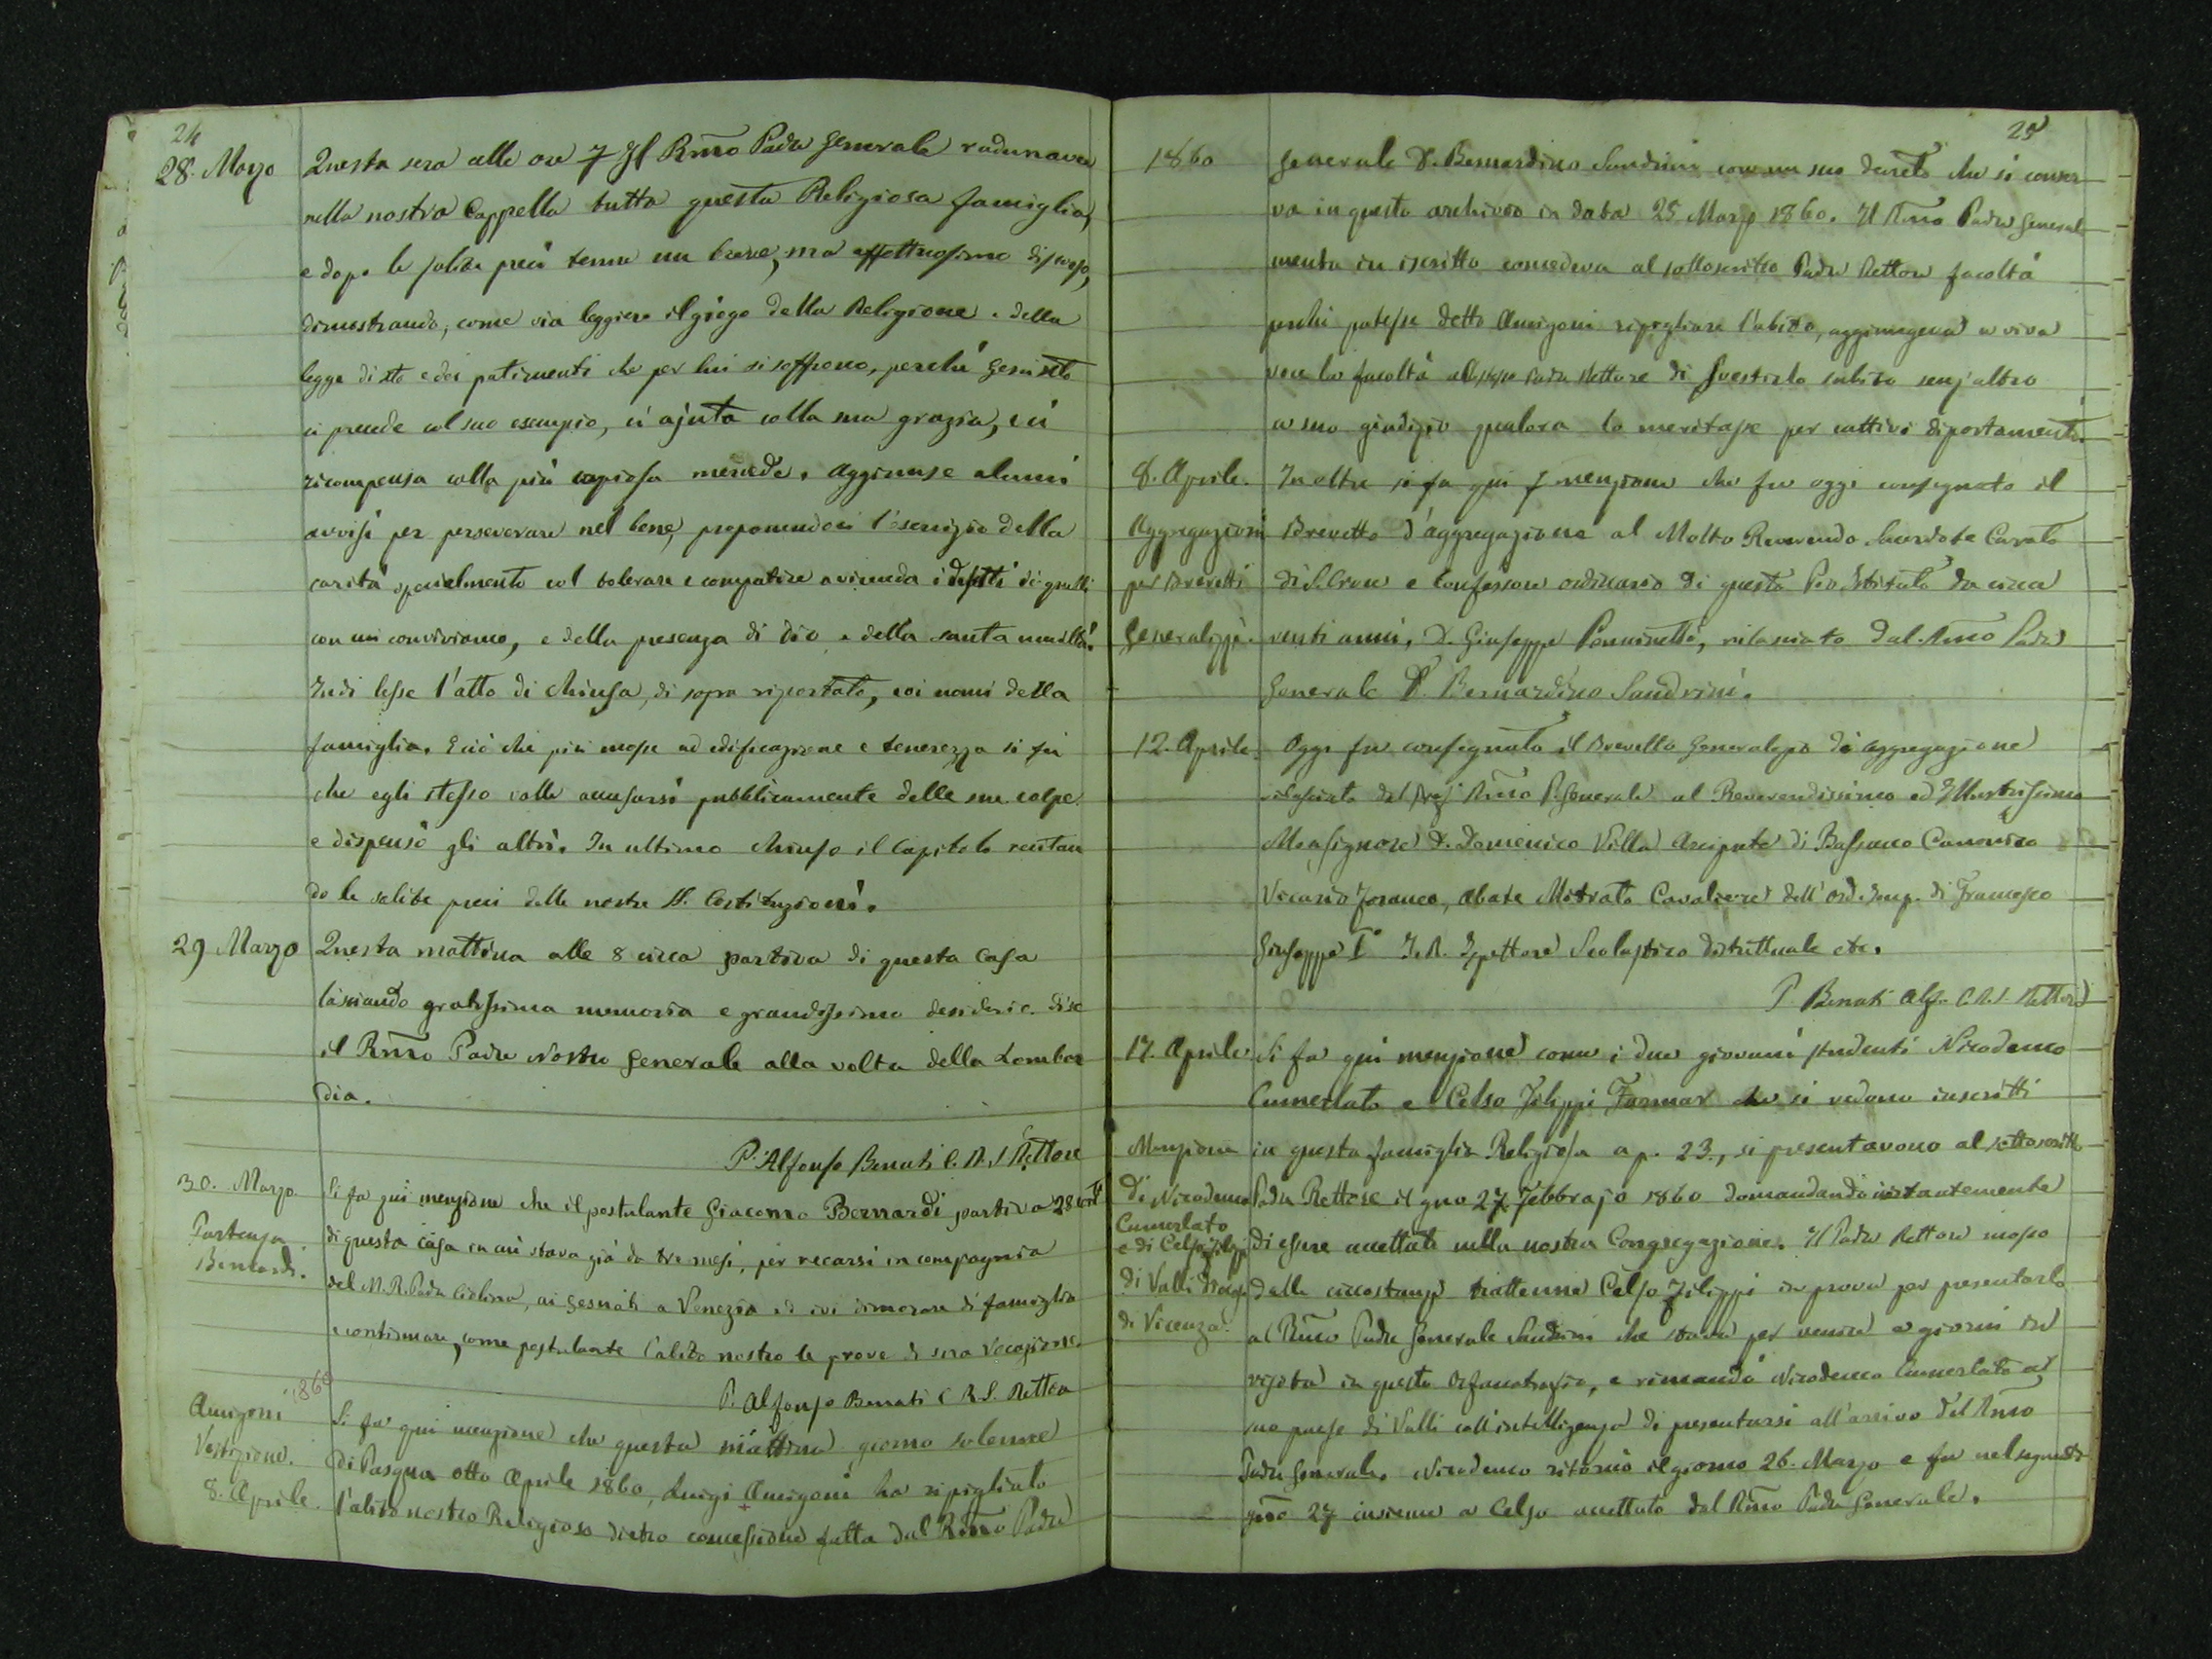 24
28. Marzo Questa sera alle ore 7 Il Rmo Padre Generale radunava
nella nostra Cappella tutta questa Religiosa famiglia,
e dopo le solite preci tenne un breve, ma affettuosissimo discorso,
dimostrando, come sia leggiero il giogo della Religione e della
legge di Xto e dei patimenti che per lui si soffrono, perchè Gesù Xto
ci precede col suo esempio, ci ajuta colla sua grazia, e ci
ricompensa colla più copiosa mercede. Aggiunse alcuni
avvisi per perseverare nel bene, proponendoci l'esercizio della
carità specialmente col tolerare e compatire a vicenda i difetti di quelli
con cui conviviamo, e della presenza di Dio e della santa umiltà.
Indi lesse l'atto di chiusa, di sopra riportato, coi nomi della
famiglia. E ciò che più mosse ad edificazione e tenerezza si fu
che egli stesso volle accusarsi pubblicamente delle sue colpe
e dispensò gli altri. In ultimo chiuse il Capitolo recitan
do le solite preci delle nostre SS. Costituzioni.
29 Marzo Questa mattina alle 8 circa partiva di questa Casa
lasciando gratissima memoria e grandissimo desiderio di se
il Rmo Padre Nostro Generale alla volta della Lombar
dia.
P. Alfonso Benati C. R. S. Rettore
30. Marzo. Si fa qui menzione che il postulante Giacomo Bernardi partiva 28
Partenza di questa casa in cui stava già da tre mesi, per recarsi in compagnia
Bernardi. del M. R. Padre ai Gesuati a Venezia ed ivi dimorare di famiglia
e continuare, come postulante l'abito nostro le prove di sua vocazione.
P. Alfonso Benati C. R. S. Rettore
1860
Amigoni Si fa qui menzione che questa mattina giorno solenne
Vestizione. di Pasqua otto Aprile 1860, Luigi Amigoni ha ripigliato
8. Aprile. l'abito nostro Religioso dietro concessione fatta dal Rmo Padre
25
1860 Generale D. Bernardino Sandrini con un suo decreto che si conser
va in questo archivio in data 25 Marzo 1860. Il Rmo Padre General
mente in iscritto concedeva al sottoscritto Padre Rettore facoltà
perchè potesse detto Amigoni ripigliare l'abito, aggiungeva a viva
voce la facoltà allo stesso Padre Rettore di svestirlo subito senz'altro
a suo giudizio qualora lo meritasse per cattivi diportamenti.
8. Aprile. In oltre si fa qui menzione che fu oggi consegnato il
Aggregazioni Brevetto d'aggregazione al Molto Reverendo Sacerdote Curato
per Brevetti di S. Croce e Confessore ordinario di questo Pio Istituto da circa
Generalizi. venti anni, D. Giuseppe, rilasciato dal Rmo Padre
Generale D. Bernardino Sandrini.
12. Aprile. Oggi fu consegnato il Brevetto Generalizio di aggregazione
rilasciato dal Rmo P. Generale al Reverendissimo ed Illustrissimo
Monsignore D. Domenico Villa Arciprete di Bassano Canonico
Vicario foraneo, Abate Mitrato Cavaliere dell'Ord. Imp. di Francesco
Giuseppe I° I. R. Ispettore Scolastico distrettuale etc.
P. Benati Alfo C. R. S. Rettore
17. Aprile Si fa qui menzione come i due giovani studenti Nicodemo
Cumerlato e Celso Filippi che si vedono inscritti
Menzione in questa famiglia Religiosa a p. 23., si presentavono al sottoscritto
di Nicodemo Padre Rettore il gno 27 Febbrajo 1860 domandando istantemente
Cumerlato
e di Celso Filippi di essere accettati nella nostra Congregazione. Il Padre Rettore mosso
di Valli dalle circostanze trattenne Celso Filippi in prova per presentarlo
di Vicenza. al Rmo Padre Generale Sandrini che stava per venire a giorni in
visita in questo Orfanotrofio, e rimandò Nicodemo Cumerlato al
suo paese di Valli coll'intelligenza di presentarsi all'arrivo del Rmo
Padre Generale. Nicodemo ritornò il giorno 26. Marzo e fu nel seguente
gno 27 insieme a Celso accettato dal Rmo Padre Generale.